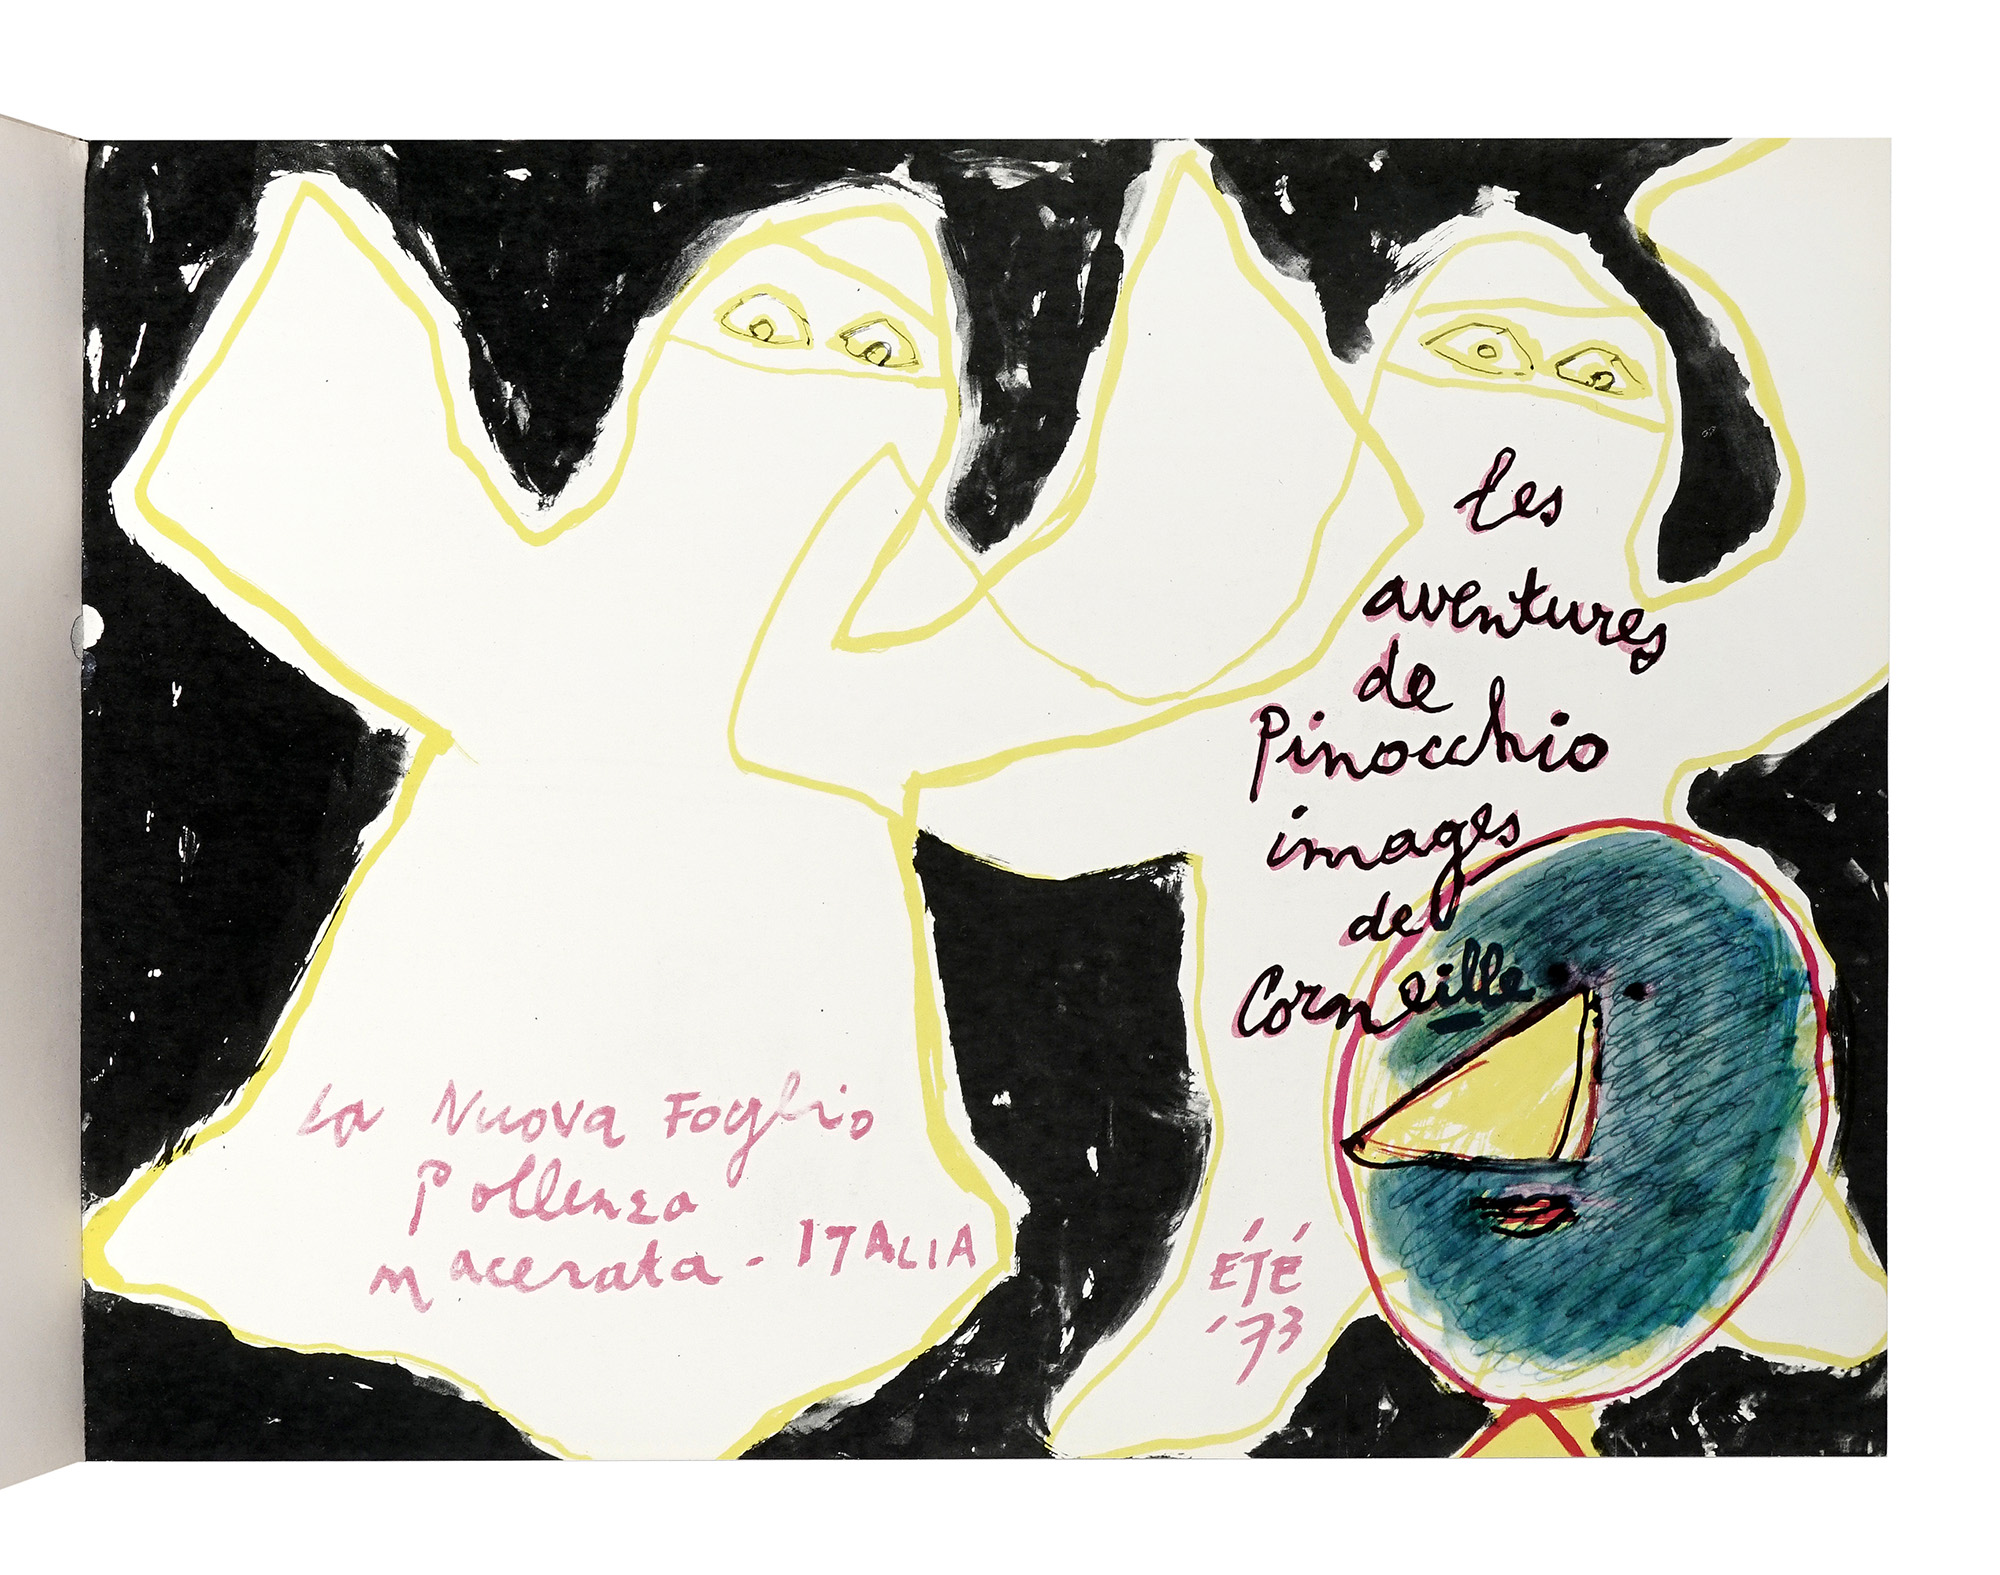 les
aventures
de
Pinocchio
images
de
Corneille
La Nuova Foglio
Pollenza
Macerata - ITALIA
ÉTÉ
'73